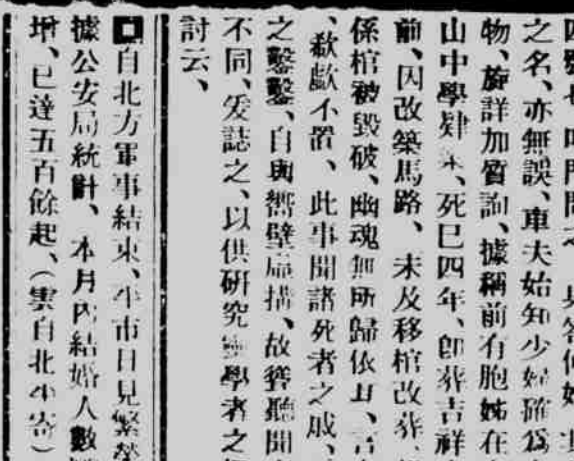 之名、亦無誤、車夫始知少婦確為
物、旋詳加質詢、據稱前有胞姊在
山中學肄 、死已四年、卽葬吉祥
前、因改築馬路、未及移棺改葬、
係棺被毀破、幽魂無所歸依 、言
、欷歔不置、此事聞諸死者之戚、
之鑿鑿、自與嚮壁虛搆、故聳聽聞
不同、爰誌之、以供研究靈學者之
討云、
自北方軍事結束、平市日見繁榮
據公安局統計、本月內結婚人數
增、已達五百餘起、（雲自北平寄）